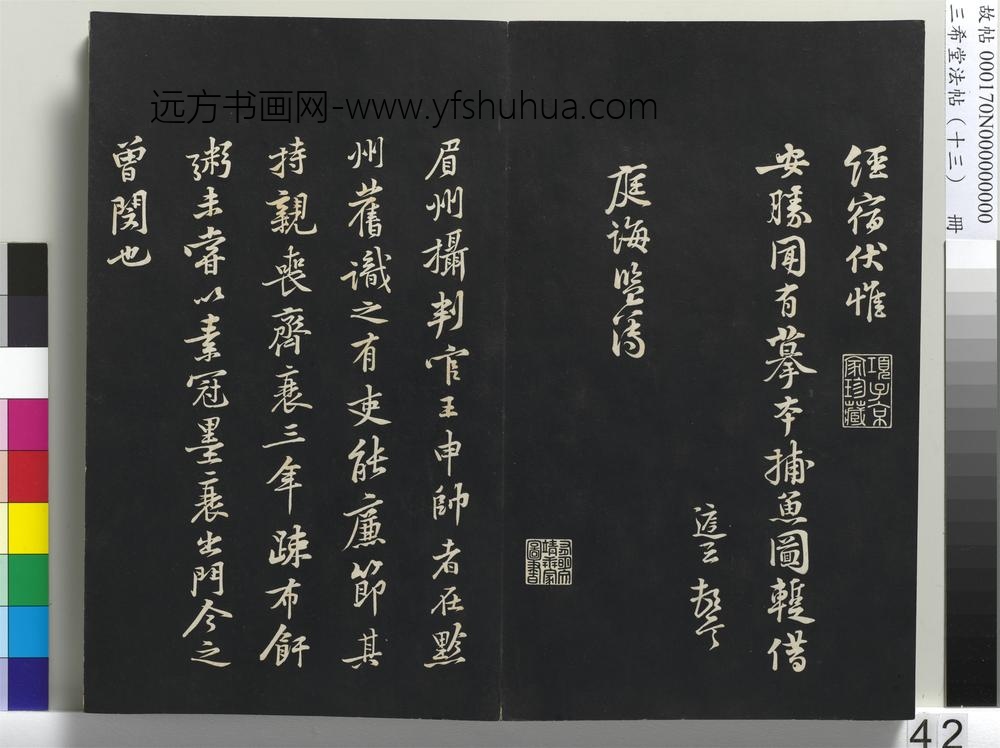 經宿伏惟
安勝聞有摹本捕魚圖輒借
遵 頓首
庭誨監簿
眉州攝判官王申帥者在黔
州舊識之有吏能廉節其
持親喪齊衰三年疎布飦
粥未嘗以素冠墨衰出門今之
曾閔也
項子京家珍藏
远方书画网-www.yfshuhua.com
故帖 000170N000000000
三希堂法帖（十三） 册
42